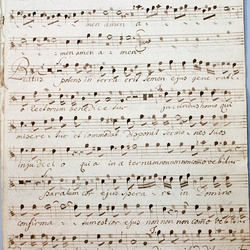 men amen a
men amen a men
potens in terra erit semen ejus gene rati
o rectorum bene di ce tur jucundus homo qui
misere tur et commodat disponet sermo nes suos
in judicio quia in æternum non non com move bitur
paratum cor ejus spera re in Domino
confirma tum est cor ejus non non com move bitur